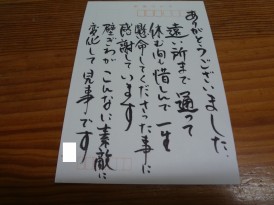 ありがとうございました。
遠い所まで通って
休む間も惜しんで一生
懸命してくださった事に
感謝しています
壁ぎわがこんない素敵に
変化して見事です